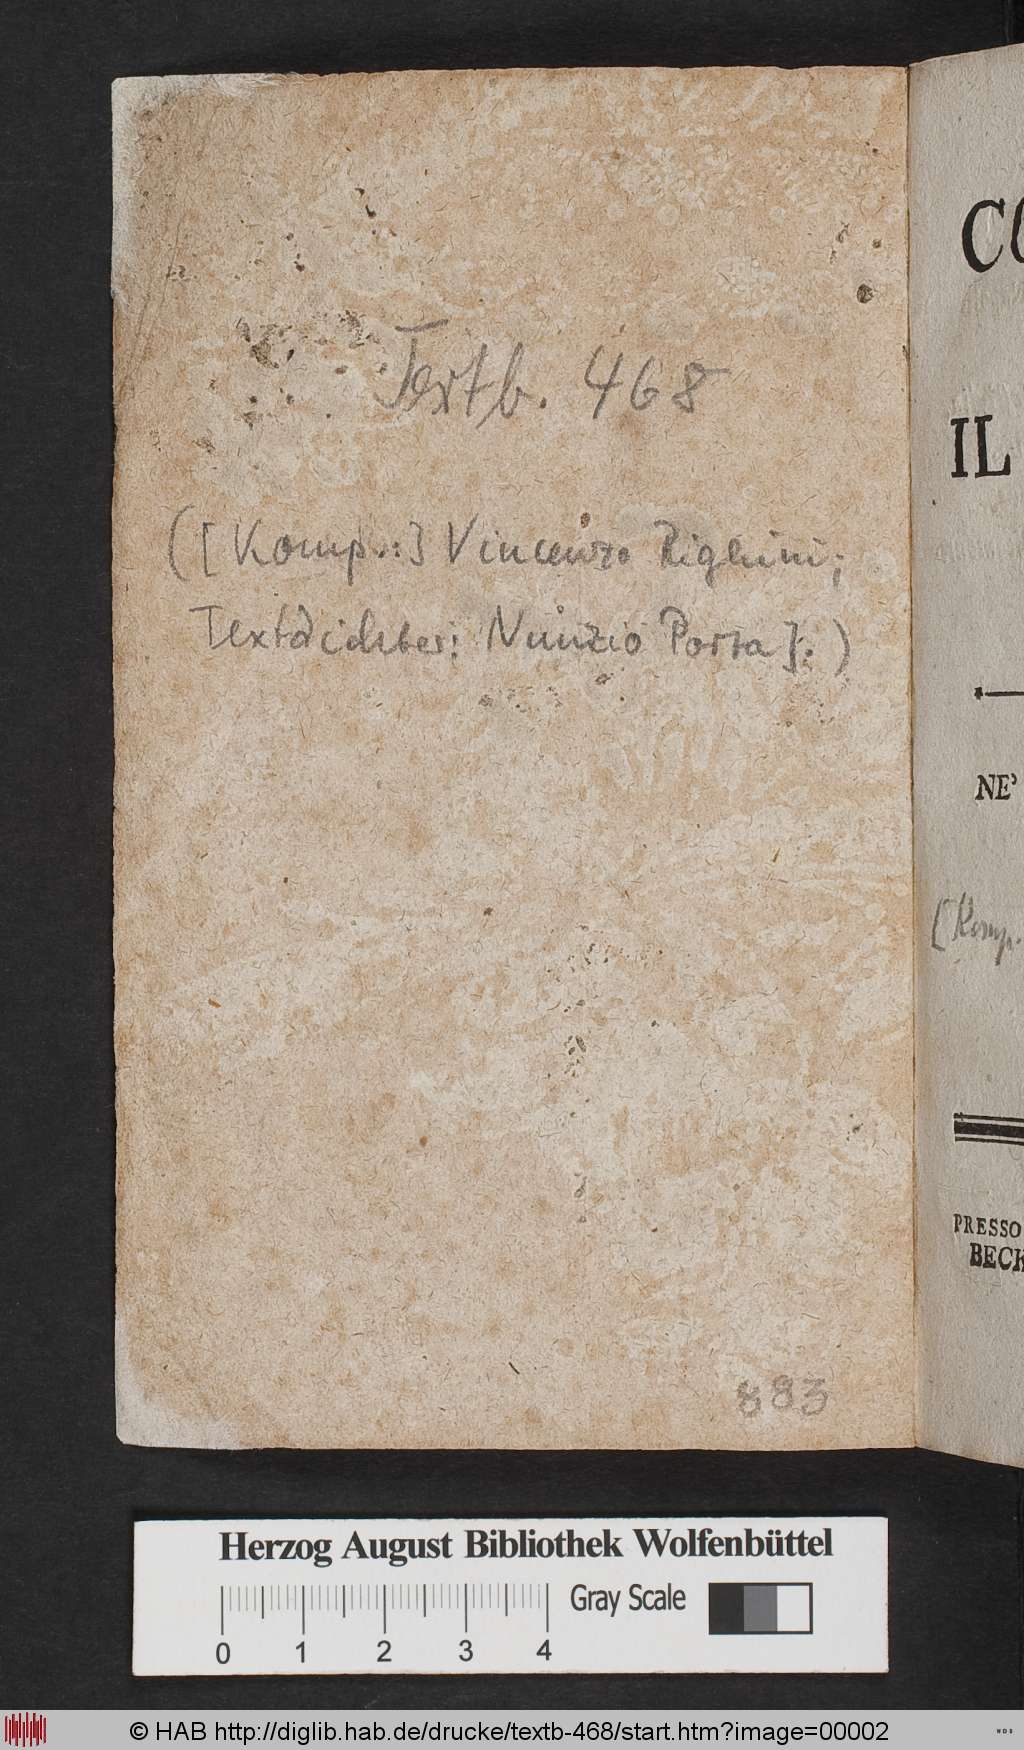 Textb. 468
([Komp.:] Vincenzo Righini;
Textdichter: Nunzio Porta].)
883
CO
IL
NE'
[Komp.
PRESSO
BECK
Herzog August Bibliothek Wolfenbüttel
Gray Scale
0 1 2 3 4
© HAB http://diglib.hab.de/drucke/textb-468/start.htm?image=00002